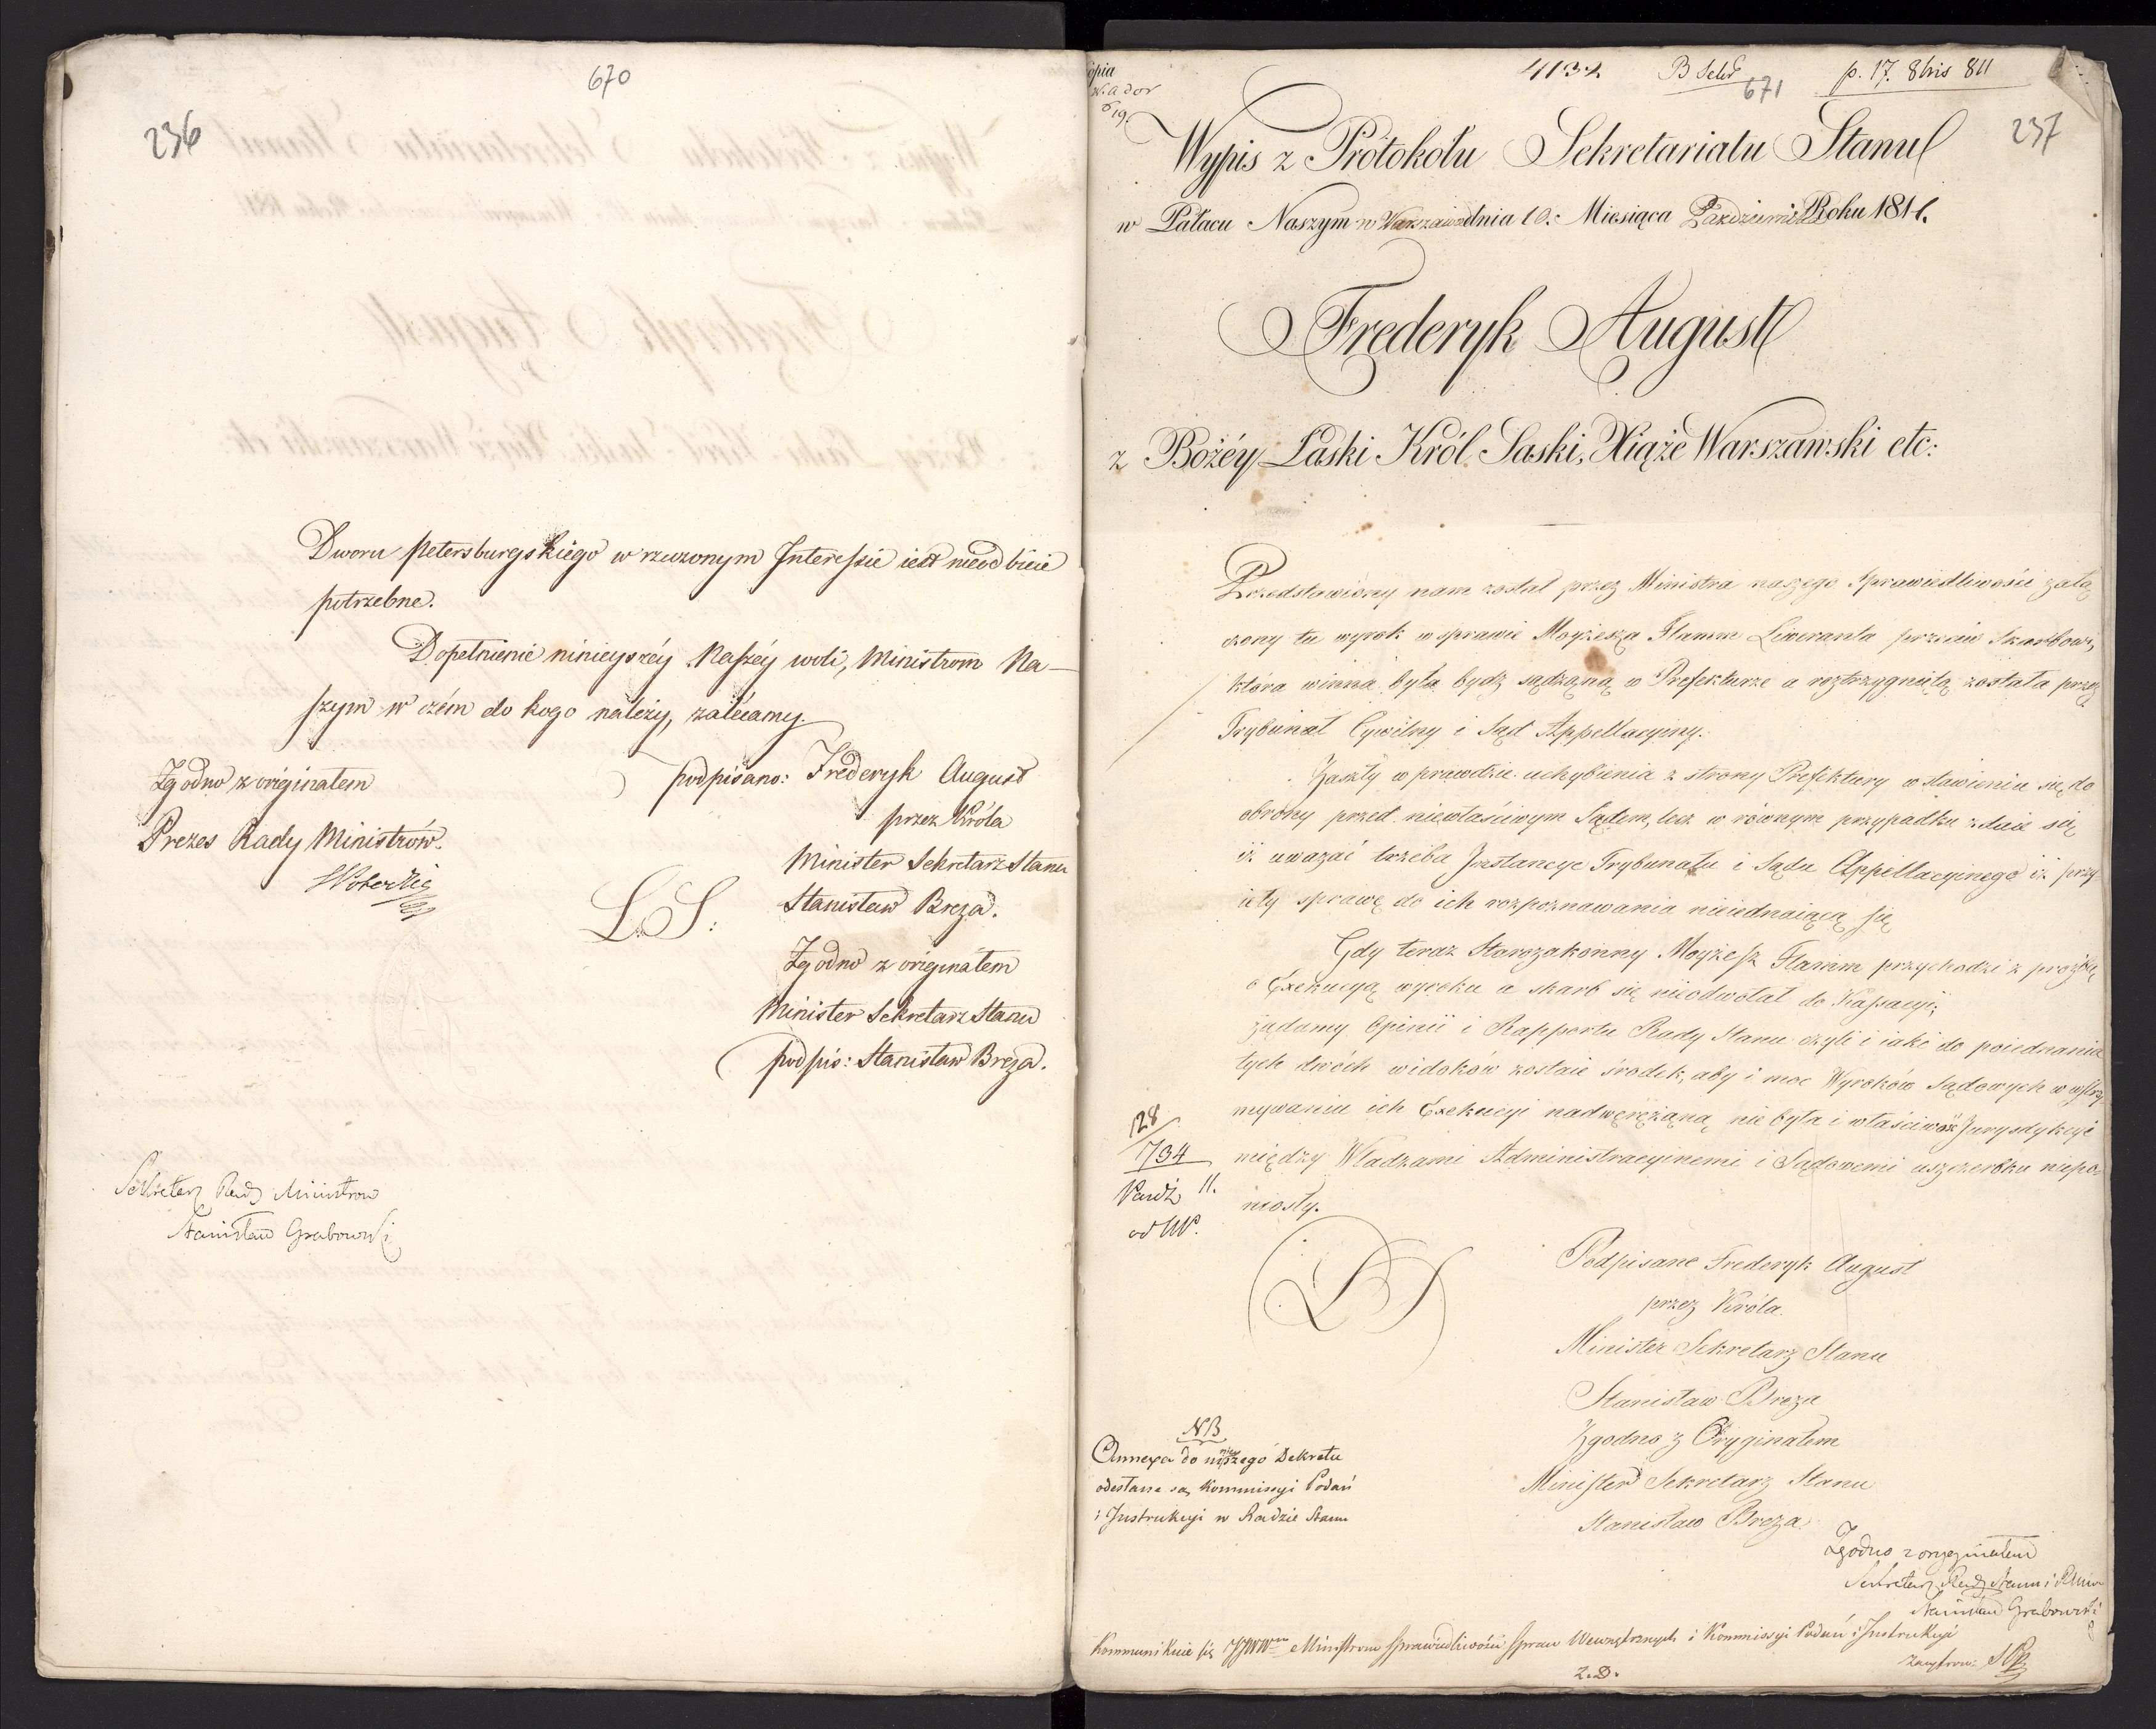 670
236
Dworu petersburgskiego w rzeczonym Interessie iest nieodbicie
potrzebne.
Dopełnienie ninieyszéy Naszéy woli, Ministrom Na-
szym w czém do kogo należy, zalécamy.
Zgodno z originałem
Prezes Rady Ministrów.
podpisano: Frederyk August
przez Króla
Minister Sekretarz Stanu
L.S:
Stanisław Breza.
Zgodno z originałem
Minister Sekretarz Stanu
podpis: Stanisław Breza.
Sekretarz Rady Ministrow
Stanisław Grabowski
4132 671 p. 17. 8bris 811
237
Wypis z Protokołu Sekretariatu Stanu
w Pałacu Naszym w Warszawie dnia 10: Miesiąca Października Roku 1811.
Frederyk August
z Bożéy Łaski Król Saski, Xiąże Warszawski etc:
Przedstawiony nam został przez Ministra naszego Sprawiedliwości załą
czony tu wyrok w sprawie Moyżesza Flamm Liweranta przeciw Skarbowi,
która winna była bydź sądzoną w Prefekturze a roztrzygniętą została przez
Trybunał Cywilny i Sąd Appellacyiny.
Zaszły wprawdzie uchybienia z strony Prefektury w stawieniu się do
obrony przed niewłaściwym Sądem, lecz w równym przypadku zdaie się
iż uważać trzeba Instancye Trybunału i Sądu Appellacyinego iż przy-
ięły sprawę do ich rozpoznawania nieiednaiącą się
Gdy teraz Starozakonny Moyżesz Flamm przychodzi z prozbą
o Exekucyą wyroku a skarb się nieodwołał do Kassacyi;
żądamy Opinii i Rapportu Rady Stanu czyli i iaki do poiednania
tych dwóch widoków zostaie środek, aby i moc Wyroków Sądowych w wstrzy-
mywaniu ich Exekucyi nadwerężaną nie była i właściwość Jurysdykcyi
między Władzami Administracyinemi i Sądowemi uszczerbku niepo-
niosły.
128
734
Paźdź 11.
Podpisane Frederyk August
przez Króla.
Minister Sekretarz Stanu
Stanisław Breza
LS
Zgodno z Oryginałem
Minister Sekretarz Stanu
Stanisław Breza
NB
Annexa do nin szego Dekretu
odesłane są Kommissyi Podań
i Instrukcyi w Radzie Stanu
Zgodno z oryginałem
Sekretarz Rady Stanu i
Stanisław Grabowski
Kommunikuie się JJWW Ministrom Sprawiedliwości Spraw Wewnętrznych i Kommissyi Podań i Instrukcyi
Z.D.